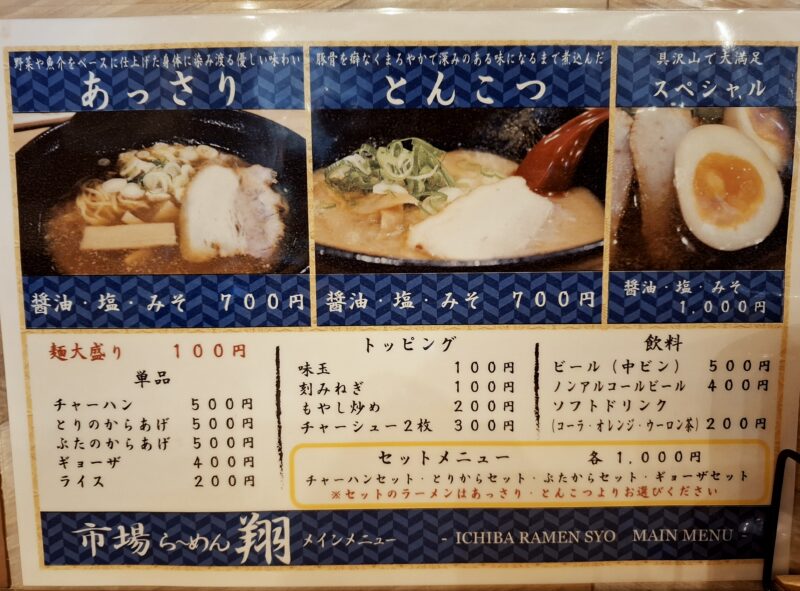 野菜や魚介をベースに仕上げた身体に染み渡る優しい味わい
あっさり
醤油・塩・みそ 700円
豚骨を癖なくまろやかで深みのある味になるまで煮込んだ
とんこつ
醤油・塩・みそ 700円
具沢山で大満足
スペシャル
醤油・塩・みそ
1,000円
麺大盛り 100円
単品
チャーハン 500円
とりのからあげ 500円
ぶたのからあげ 500円
ギョーザ 400円
ライス 200円
トッピング
味玉 100円
刻みねぎ 100円
もやし炒め 200円
チャーシュー2枚 300円
飲料
ビール（中ビン） 500円
ノンアルコールビール 400円
ソフトドリンク
（コーラ・オレンジ・ウーロン茶） 200円
セットメニュー 各1,000円
チャーハンセット・とりからセット・ぶたからセット・ギョーザセット
※セットのラーメンはあっさり・とんこつよりお選びください
市場らーめん翔 メインメニュー - ICHIBA RAMEN SYO MAIN MENU -